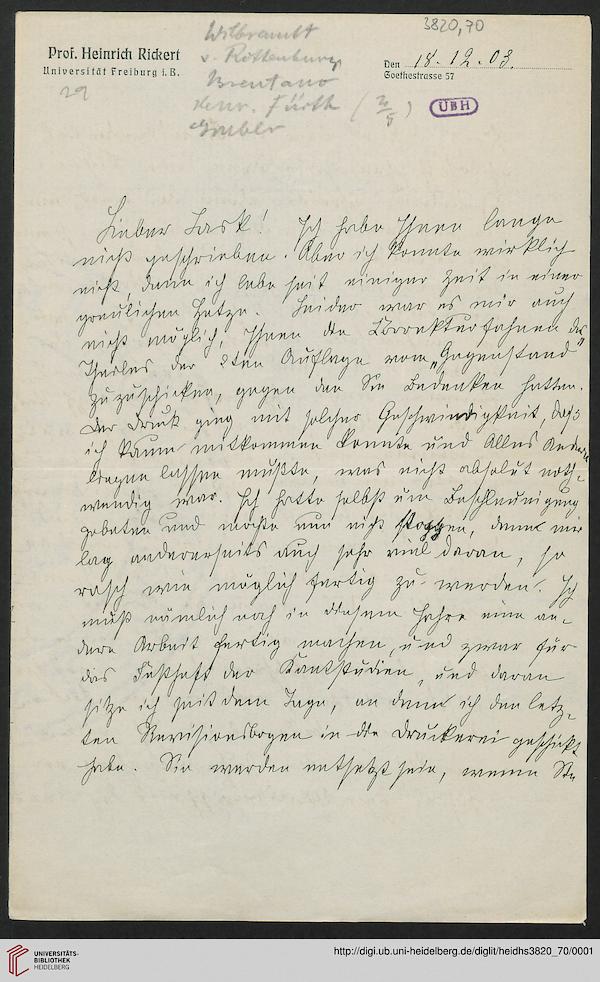 3820,70
Wilbrandt
v. Rottenburg
Brentano
Henr. Fürth (2/5)
Gruber
29
Prof. Heinrich Rickert
Universität Freiburg i. B.
Den 18.12.03.
Goethestrasse 57
UBH
Lieber Lask! Ich habe Ihnen lange
nicht geschrieben. Aber ich konnte wirklich
nicht, denn ich lebe seit einiger Zeit in einer
greulichen Hetze. Leider war es mir auch
nicht möglich, Ihnen die Korrekturfahnen des
Theiles der 2ten Auflage vom „Gegenstand"
zuzuschicken, gegen den Sie Bedenken hatten.
Der Druck ging mit solcher Geschwindigkeit, daß
ich kaum mitkommen konnte und Alles Andere
liegen lassen mußte, was nicht absolut noth-
wendig war. Ich hatte selbst um Beschleunigung
gebeten und mochte nun nicht stoppen, denn mir
lag andererseits auch sehr viel daran, so
rasch wie möglich fertig zu werden. Ich
muß nämlich noch in diesem Jahre eine an-
dere Arbeit fertig machen, und zwar für
das Festheft der Kantstudien, und daran
sitze ich seit dem Tage, an dem ich den letz-
ten Revisionsbogen in die Druckerei geschickt
habe. Sie werden entsetzt sein, wenn Sie
UNIVERSITÄTS-
BIBLIOTHEK
HEIDELBERG
http://digi.ub.uni-heidelberg.de/diglit/heidhs3820_70/0001